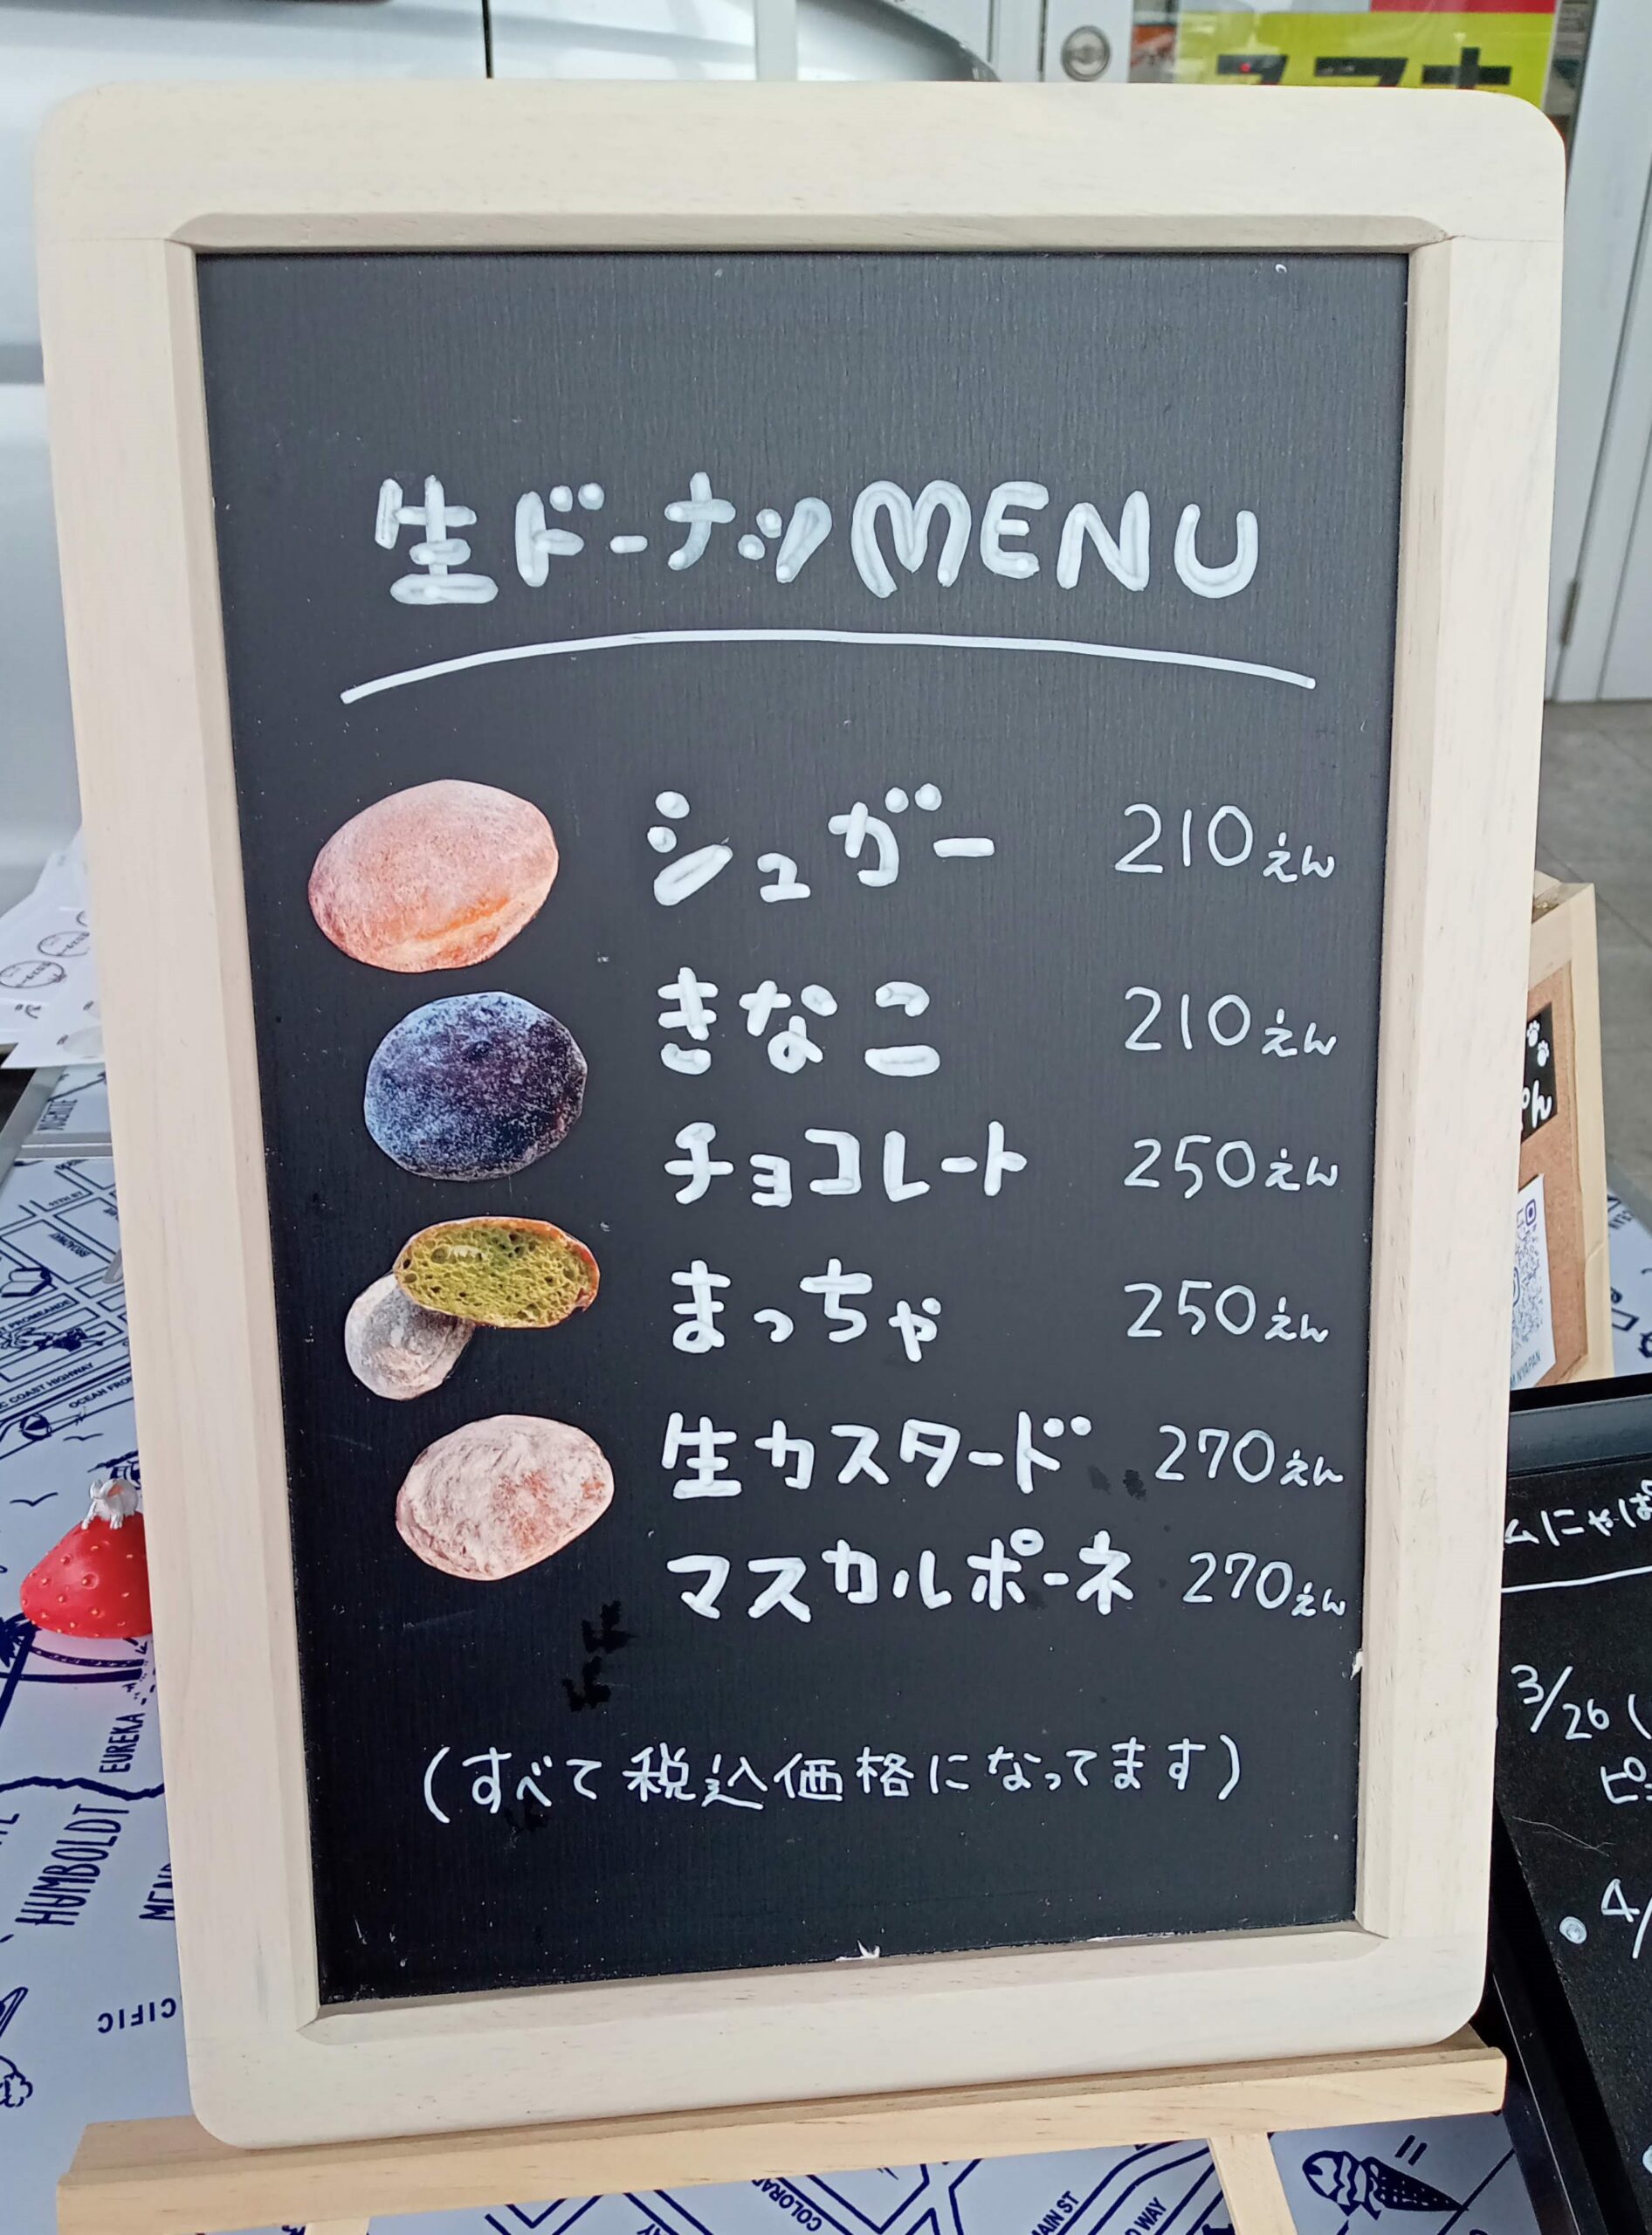 生ドーナツMENU
シュガー 210えん
きなこ 210えん
チョコレート 250えん
まっちゃ 250えん
生カスタード 270えん
マスカルポーネ 270えん
(すべて税込価格になってます)
スマホ
ムにゃぱ
3/26 (
ピ
4/
BROADWAY
COAST HIGHWAY
OCEAN FRO
EUREKA
HUMBOLDT
CIFIC
MAIN ST
WAY